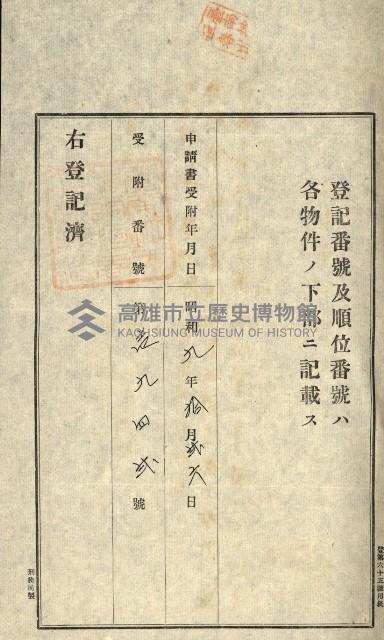 登記番號及順位番號ハ
各物件ノ下部ニ記載ス
申請書受附年月日 昭和九年拾月貳六日
受附番號 第壱九四貳號
右登記濟
高雄市立歷史博物館
KAOHSIUNG MUSEUM OF HISTORY
刑務所製